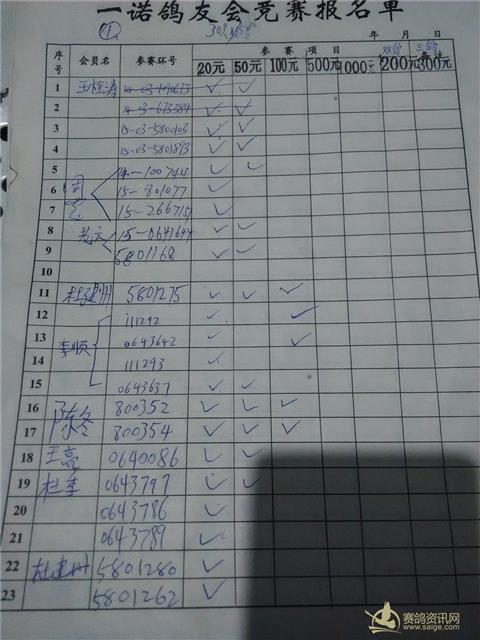 一诺鸽友会竞赛报名单
① 30%
年 月 日
序号 会员名 参赛环号 参赛项目 双鸽 三鸽
20元 50元 100元 500元 1000元 200元 300元
1 14-03-190673 ✓ ✓
2 14-03-673384 ✓ ✓
3 15-03-5800103 ✓ ✓
4 15-03-5801893 ✓ ✓
5 14-100744 ✓ ✓
6 15-801077 ✓
7 15-266715 ✓
8 15-0641644 ✓ ✓
9 5801168 ✓ ✓
10
11 杜建州 5801275 ✓ ✓ ✓
12 111292 ✓ ✓
13 李顺 0643642 ✓ ✓
14 111293 ✓
15 0643637 ✓ ✓
16 陈冬 800352 ✓ ✓ ✓
17 800354 ✓ ✓ ✓
18 王亮 0640086 ✓ ✓
19 杜奎 0643797 ✓ ✓
20 0643786 ✓
21 0643789 ✓
22 杜建州 5801280 ✓
23 5801262 ✓
赛鸽资讯网
www.saige.com